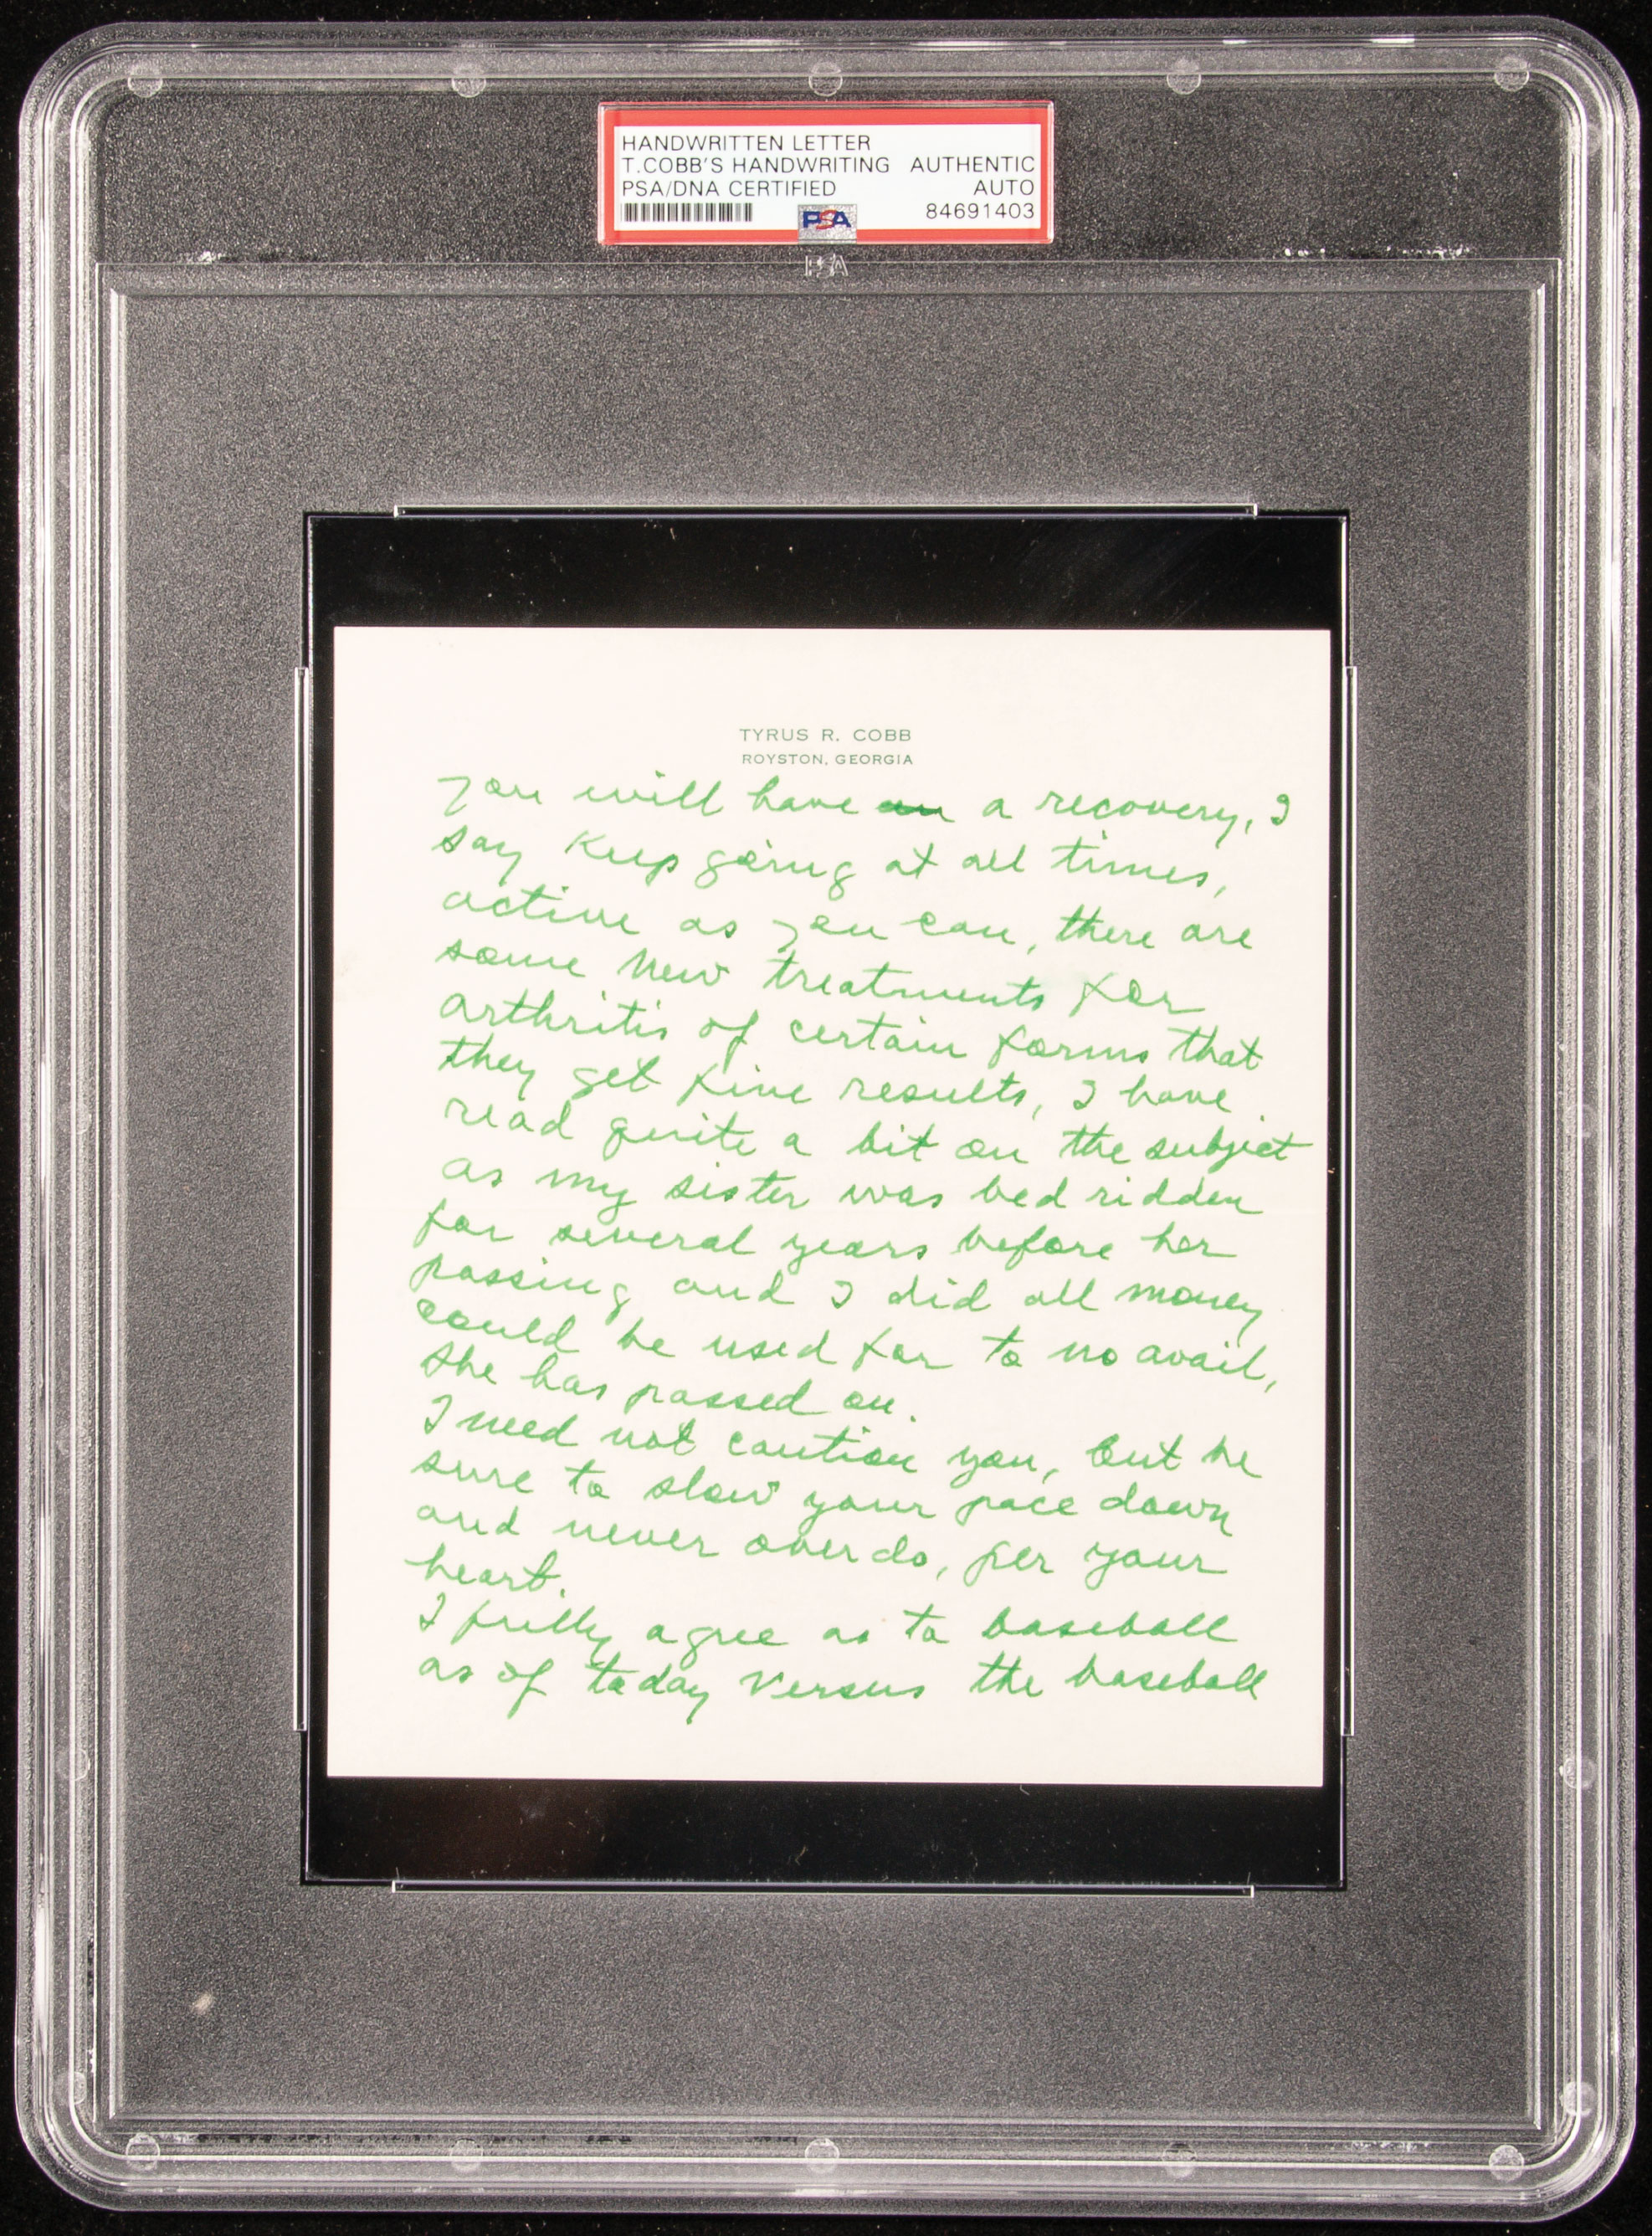 HANDWRITTEN LETTER
T.COBB'S HANDWRITING AUTHENTIC
PSA/DNA CERTIFIED AUTO
PSA 84691403
PSA
TYRUS R. COBB
ROYSTON, GEORGIA
you will have an a recovery, I
say Keep going at all times,
active as you can, there are
some new treatments for
arthritis of certain forms that
they get fine results, I have
read quite a bit on the subject
as my sister was bed ridden
for several years before her
passing and I did all money
could be used for to no avail,
she has passed on.
I need not caution you, but be
sure to slow your pace down
and never over do, per your
heart.
I fully agree as to baseball
as of today versus the baseball